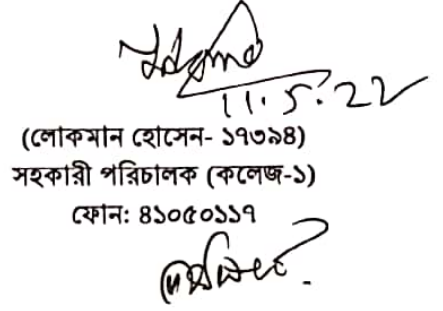 11.5.22
(লোকমান হোসেন- ১৭৩৯৪)
সহকারী পরিচালক (কলেজ-১)
ফোন: ৪১০৫০১১৭